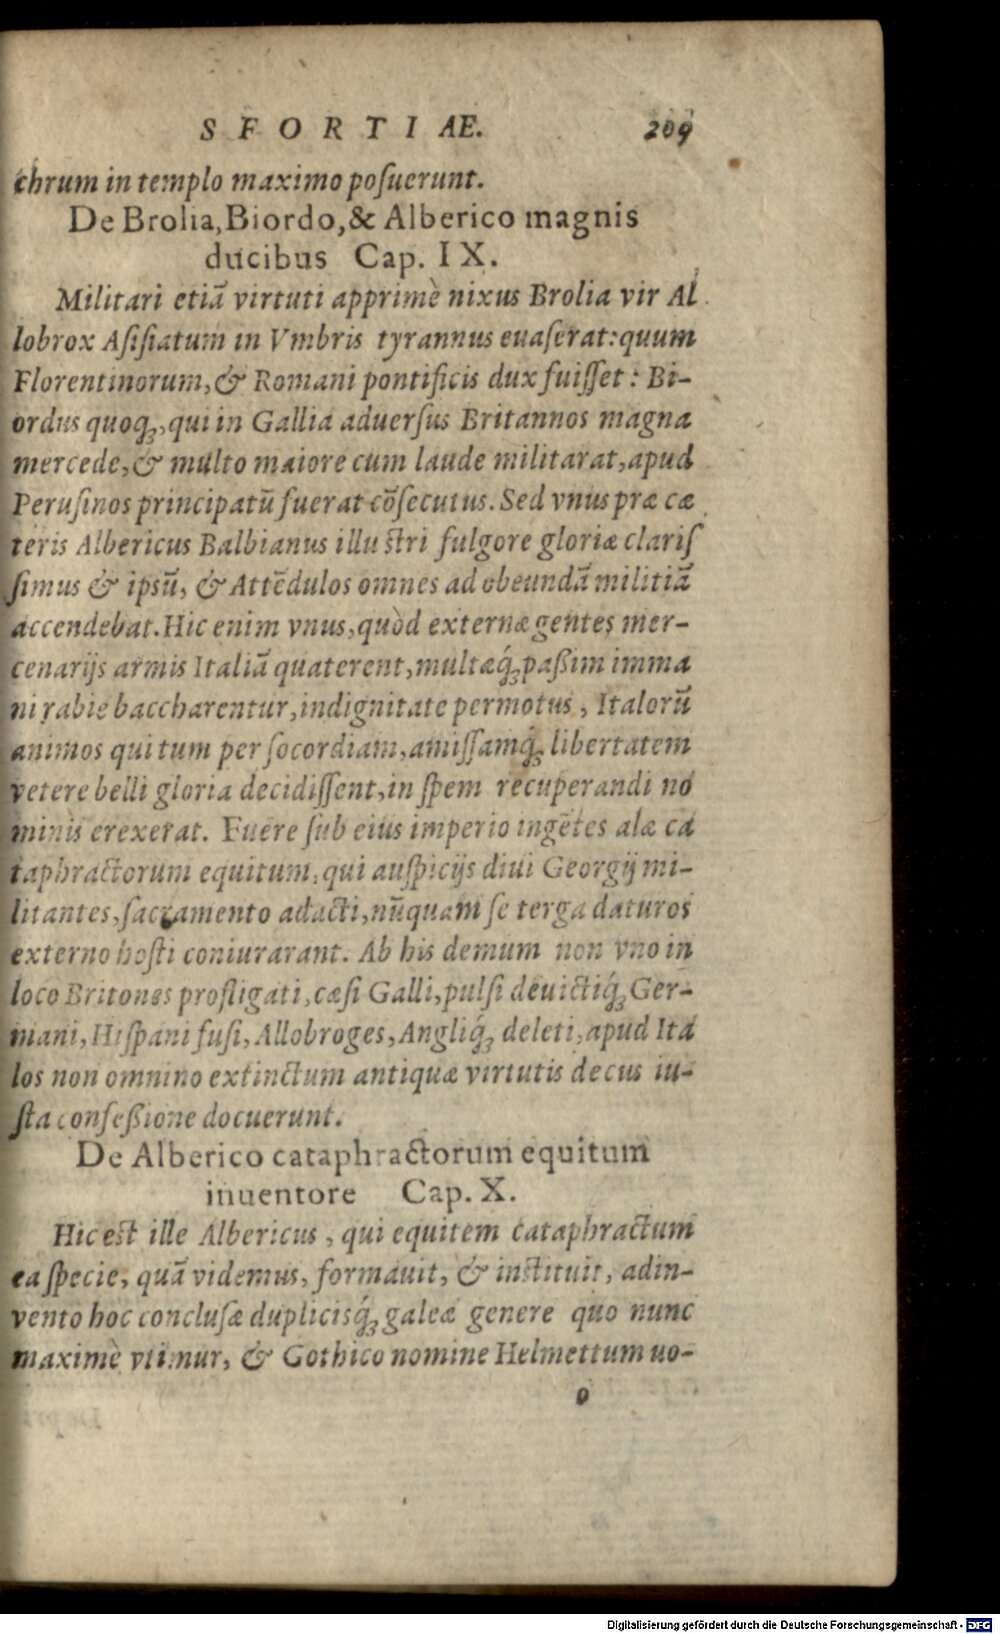 SFORTIAE. 209
chrum in templo maximo poſuerunt.
De Brolia, Biordo, & Alberico magnis
ducibus Cap. IX.
Militari etiã virtuti apprimè nixus Brolia vir Al
lobrox Aſiſiatum in Vmbris tyrannus euaſerat: quum
Florentinorum, & Romani pontificis dux fuiſſet: Bi-
ordus quoqꝫ, qui in Gallia aduerſus Britannos magna
mercede, & multo maiore cum laude militarat, apud
Peruſinos principatũ fuerat cõſecutus. Sed vnus præ cæ
teris Albericus Balbianus illuſtri fulgore gloriæ clariſ
ſimus & ipsũ, & Attẽdulos omnes ad obeundã militiã
accendebat. Hic enim vnus, quòd externæ gentes mer-
cenarijs armis Italiã quaterent, multæq́ꝫ paßim imma
ni rabie baccharentur, indignitate permotus, Italorũ
animos qui tum per ſocordiam, amiſſamq́ꝫ libertatem
vetere belli gloria decidiſſent, in ſpem recuperandi no
minis erexerat. Fuere ſub eius imperio ingẽtes alæ ca
taphractorum equitum, qui auſpicijs diui Georgij mi-
litantes, ſacramento adacti, nũquam ſe terga daturos
externo hoſti coniurarant. Ab his demum non vno in
loco Britones profligati, cæſi Galli, pulſi deuictiq́ꝫ Ger-
mani, Hiſpani fuſi, Allobroges, Angliq́ꝫ deleti, apud Ita
los non omnino extinctum antiquæ virtutis decus iu-
ſta confeßione docuerunt.
De Alberico cataphractorum equitum
inuentore Cap. X.
Hic eſt ille Albericus, qui equitem cataphractum
ea ſpecie, quã videmus, formauit, & inſtituit, adin-
vento hoc concluſæ duplicisq́ꝫ galeæ genere quo nunc
maximè vtimur, & Gothico nomine Helmettum uo-
o
Digitalisierung gefördert durch die Deutsche Forschungsgemeinschaft - DFG